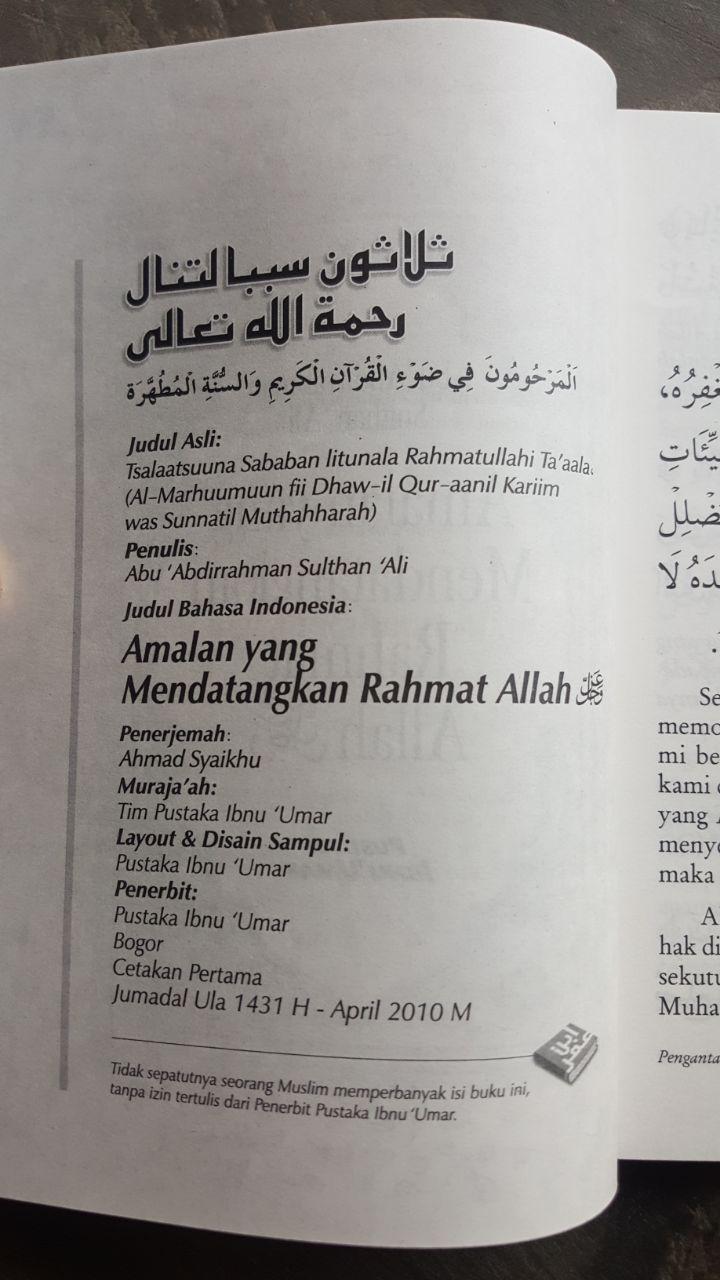 ثلاثون سببا لتنال
رحمة الله تعالى
اَلْمَرْحُومُونَ فِي ضَوْءِ الْقُرْآنِ الْكَرِيمِ وَالسُّنَّةِ الْمُطَهَّرَة
Judul Asli:
Tsalaatsuuna Sababan litunala Rahmatullahi Ta'aala.
(Al-Marhuumuun fii Dhaw-il Qur-aanil Kariim
was Sunnatil Muthahharah)
Penulis:
Abu 'Abdirrahman Sulthan 'Ali
Judul Bahasa Indonesia:
Amalan yang
Mendatangkan Rahmat Allah عَزَّ وَجَلَّ
Penerjemah:
Ahmad Syaikhu
Muraja'ah:
Tim Pustaka Ibnu 'Umar
Layout & Disain Sampul:
Pustaka Ibnu 'Umar
Penerbit:
Pustaka Ibnu 'Umar
Bogor
Cetakan Pertama
Jumadal Ula 1431 H - April 2010 M
ابن عمر
Tidak sepatutnya seorang Muslim memperbanyak isi buku ini,
tanpa izin tertulis dari Penerbit Pustaka Ibnu 'Umar.
لَا
Se
memo
mi be
kami
yang
menye
maka
hak di
sekutu
Muha
Penganta